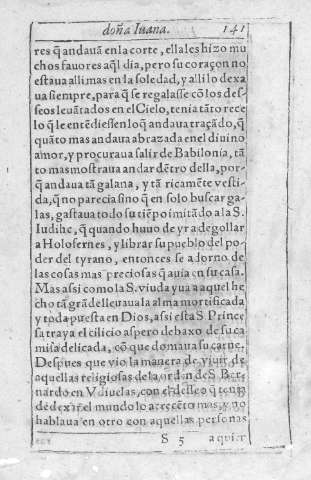 doña Iuana. 141
res q̃ andauã en la corte, ella les hizo mu
chos fauores aq̃l dia, pero su coraçon no
estaua alli mas en la soledad, y alli lo dexa
ua siempre, para q̃ se regalasse cõ los des-
seos leuãtados en el Cielo, tenia tãto rece
lo q̃ le entẽdiessen lo q̃ andaua traçãdo, q̃
quãto mas andaua abrazada en el diuino
amor, y procuraua salir de Babilonia, tã
to mas mostraua andar dẽtro della, por-
q̃ andaua tã galana, y tã ricamẽte vesti-
da, q̃ no parecia sino q̃ en solo buscar ga-
las, gastaua todo su tiẽpo imitãdo a la S.
Iudihc, q̃ quando huuo de yr a degollar
a Holofernes, y librar su pueblo del po-
der del tyrano, entonces se adorno de
las cosas mas preciosas q̃ auia en su casa.
Mas assi como la S. viuda yua a aquel he
cho tã grãde lleuaua la alma mortificada
y toda puesta en Dios, assi esta S. Prince
sa traya el cilicio aspero debaxo de su ca
misa delicada, cõ que domaua su carne.
Despues que vio la manera de viuir de
aquellas religiosas de la ordẽ de S. Ber-
nardo en Vdiuelas, con el desseo q̃ tenia
de dexar el mundo lo acrecẽto mas, y no
hablaua en otro con aquellas personas
S 5 a quiẽ